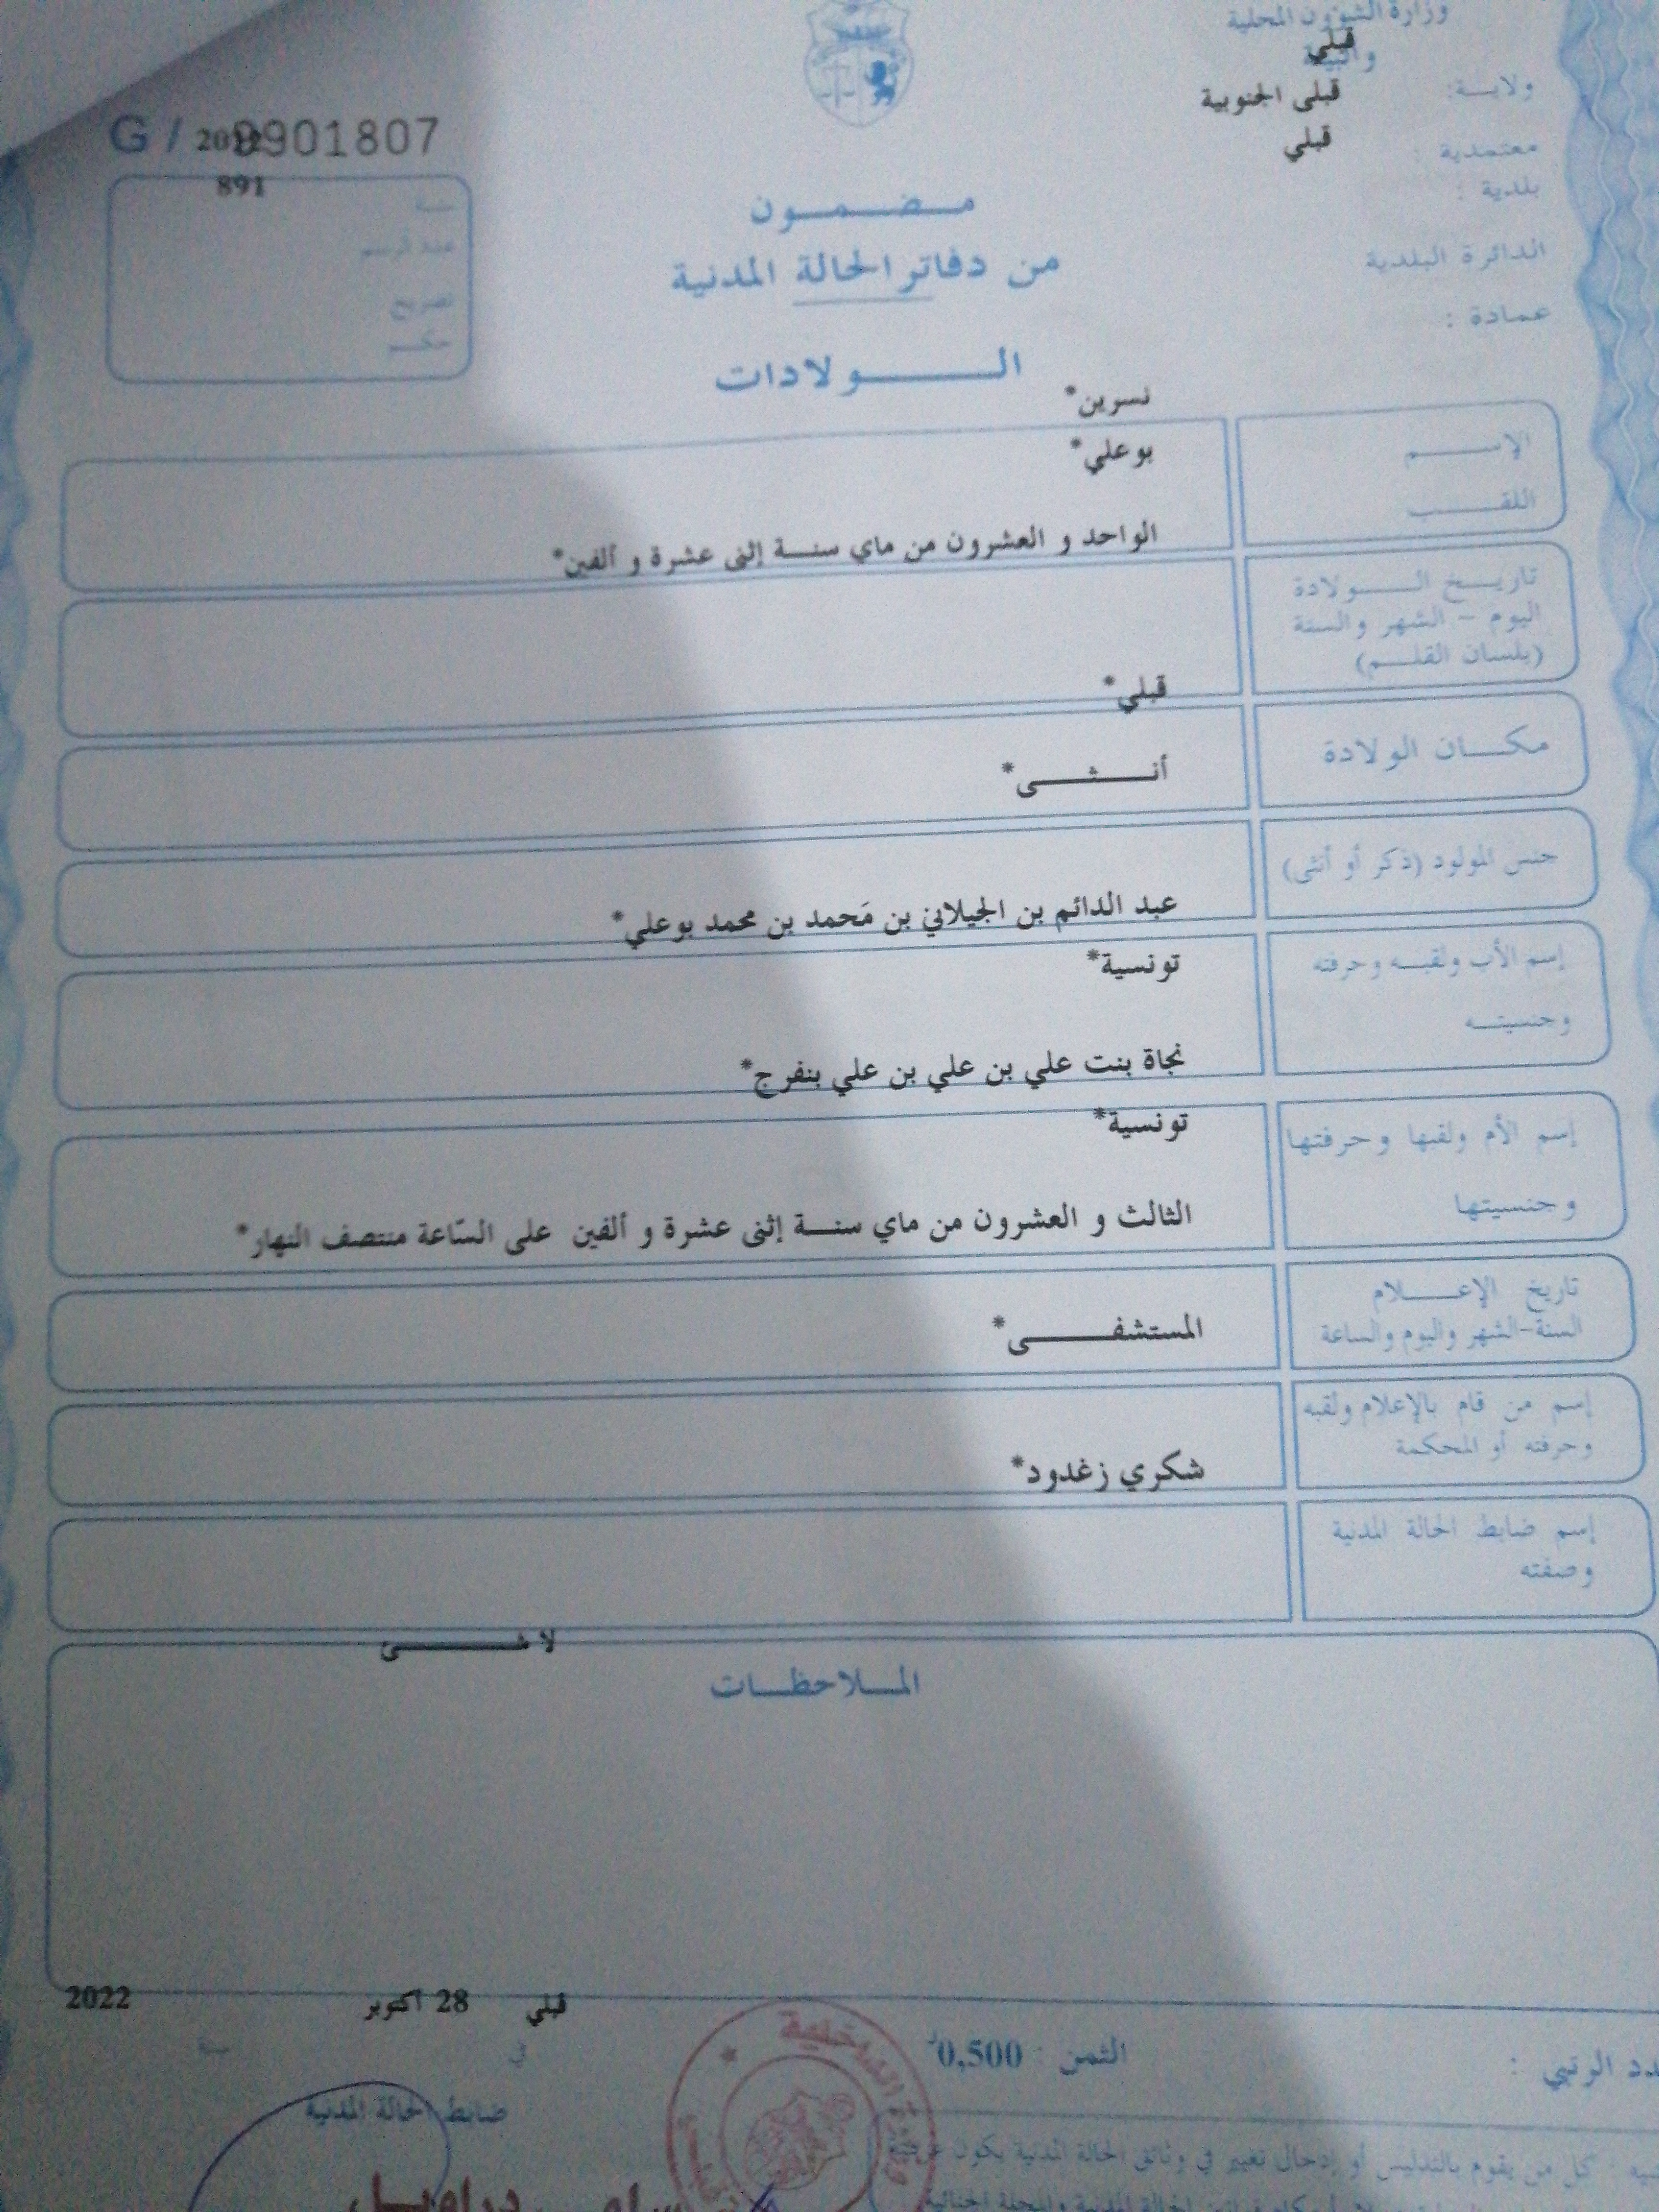 وزارة الشؤون المحلية
والبيئة
قبلي
ولايــة:
قبلي الجنوبية
معتمدية :
قبلي
بلدية :
الدائرة البلدية
عمادة :
G / 9901807
2012
891
سنــة
عدد الرسم
تصريح
حكــم
مــضــمــون
من دفاتر الحالة المدنية
الــــولادات
نسرين*
الإســــم
بوعلي*
اللقــــب
الواحد و العشرون من ماي سنــة إثنى عشرة و ألفين*
تاريــخ الـــولادة
اليوم - الشهر والسنة
(بلسان القلـــم)
قبلي*
مكـــان الولادة
أنــــثــــى*
جنس المولود (ذكر أو أنثى)
عبد الدائم بن الجيلاني بن مَحمد بن محمد بوعلي*
إسم الأب ولقبــه وحرفته
تونسية*
وجنسيتــه
نجاة بنت علي بن علي بن علي بنفرج*
إسم الأم ولقبها وحرفتها
تونسية*
وجنسيتها
الثالث و العشرون من ماي سنــة إثنى عشرة و ألفين على السّاعة منتصف النهار*
تاريخ الإعــــلام
السنة-الشهر واليوم والساعة
المستشفــــــى*
إسم من قام بالإعلام ولقبه
وحرفته أو المحكمة
شكري زغدود*
إسم ضابط الحالة المدنية
وصفته
لا شــــــئ
المــلاحظــات
قبلي 28 أكتوبر 2022
في سنة
الثمن : 0,500 د
الرتبي :
ضابط الحالة المدنية
كل من يقوم بالتدليس أو إدخال تغيير في وثائق الحالة المدنية يكون عرضة